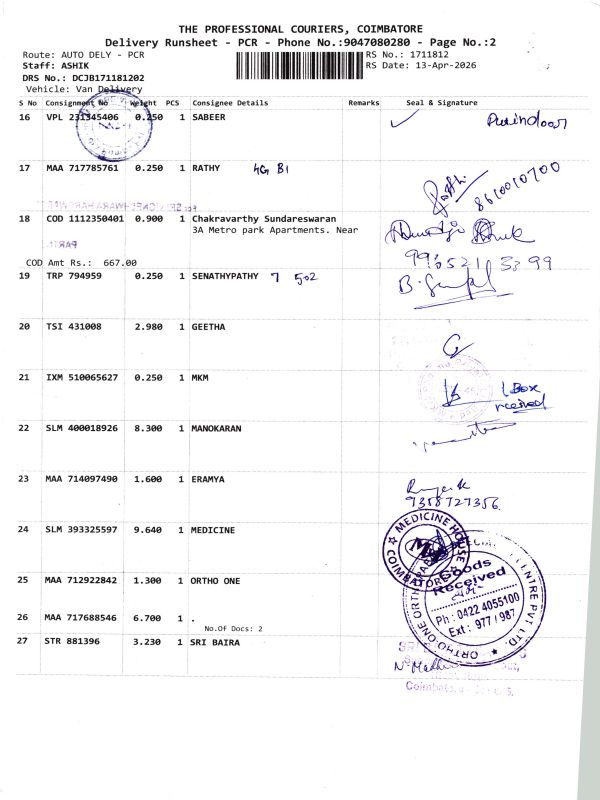 THE PROFESSIONAL COURIERS, COIMBATORE
Delivery Runsheet - PCR - Phone No.:9047080280 - Page No.:2
Route: AUTO DELY - PCR
RS No.: 1711812
Staff: ASHIK
RS Date: 13-Apr-2026
DRS No.: DCJB171181202
Vehicle: Van Delivery
S No Consignment No Weight PCS Consignee Details Remarks Seal & Signature
16 VPL 231345406 0.250 1 SABEER
17 MAA 717785761 0.250 1 RATHY 4G B1
8610010700
18 COD 1112350401 0.900 1 Chakravarthy Sundareswaran
3A Metro park Apartments. Near
COD Amt Rs.: 667.00
19 TRP 794959 0.250 1 SENATHYPATHY 7 502
20 TSI 431008 2.980 1 GEETHA
21 IXM 510065627 0.250 1 MKM
1 Box
received
22 SLM 400018926 8.300 1 MANOKARAN
23 MAA 714097490 1.600 1 ERAMYA
9358727356
24 SLM 393325597 9.640 1 MEDICINE
MEDICINE HOUSE
COIMBATORE
25 MAA 712922842 1.300 1 ORTHO ONE
Goods
Received
Ph : 0422 4055100
Ext : 977 / 987
26 MAA 717688546 6.700 1 .
No.Of Docs: 2
27 STR 881396 3.230 1 SRI BAIRA